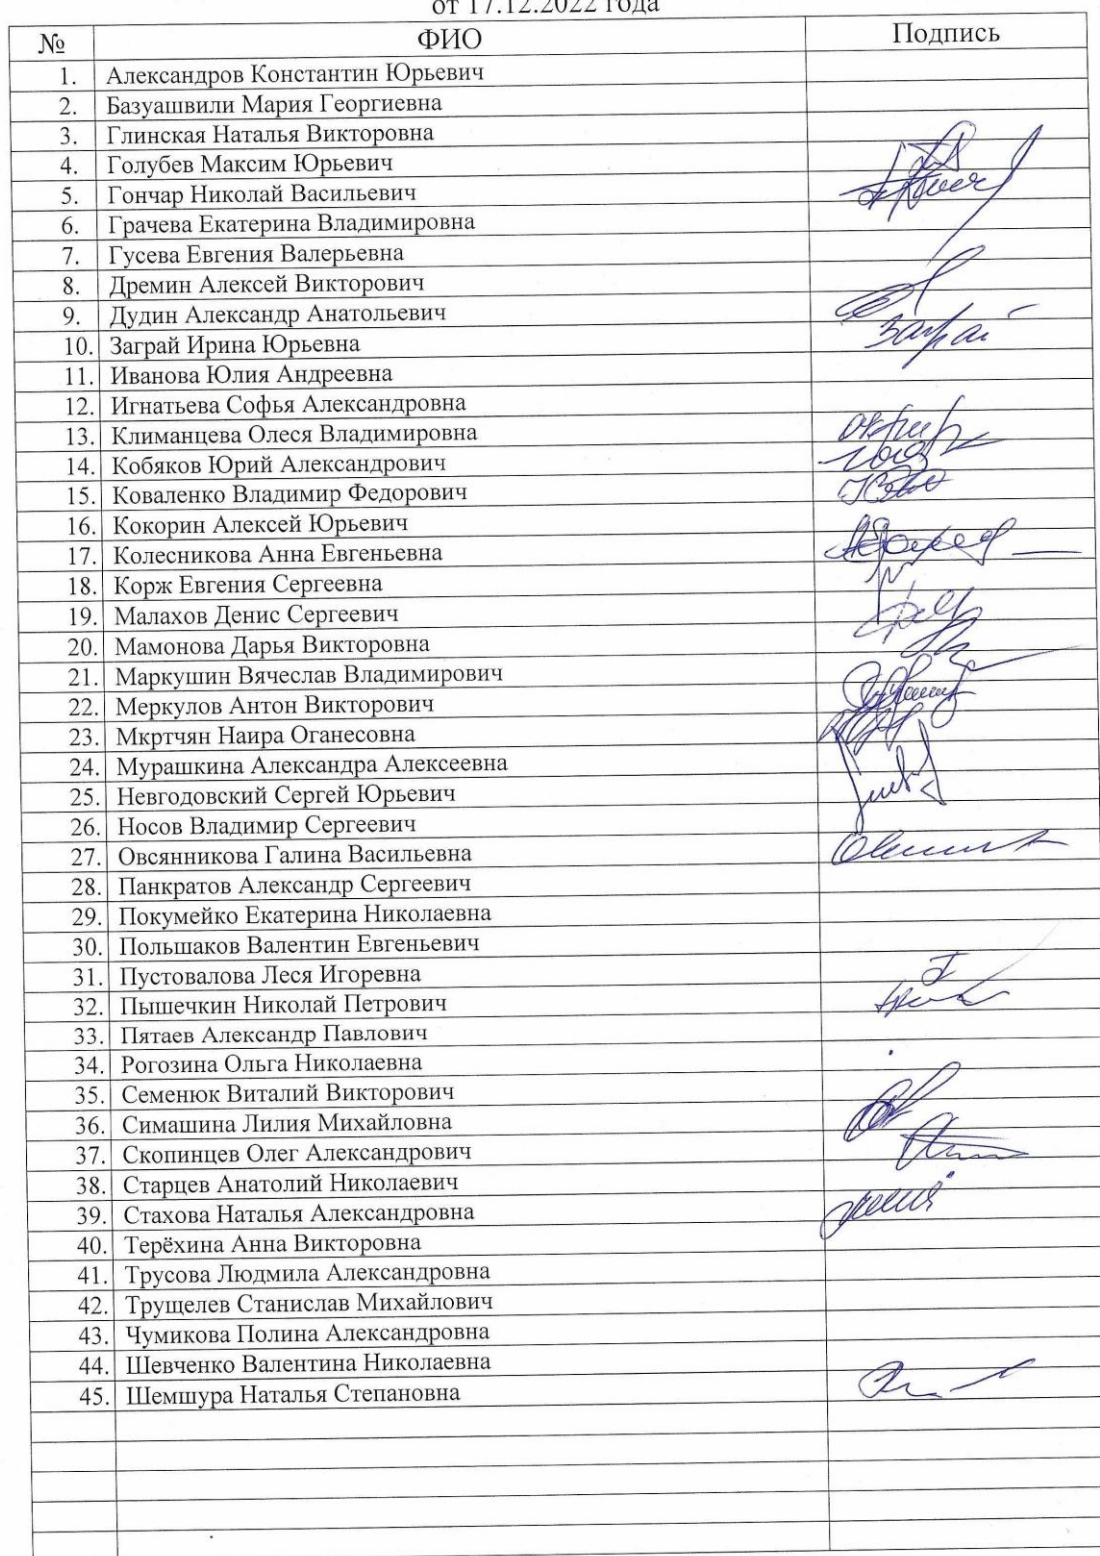 от 17.12.2022 года
№ ФИО Подпись
1. Александров Константин Юрьевич
2. Базуашвили Мария Георгиевна
3. Глинская Наталья Викторовна
4. Голубев Максим Юрьевич
5. Гончар Николай Васильевич
6. Грачева Екатерина Владимировна
7. Гусева Евгения Валерьевна
8. Дремин Алексей Викторович
9. Дудин Александр Анатольевич
10. Заграй Ирина Юрьевна Заграй
11. Иванова Юлия Андреевна
12. Игнатьева Софья Александровна
13. Климанцева Олеся Владимировна
14. Кобяков Юрий Александрович
15. Коваленко Владимир Федорович
16. Кокорин Алексей Юрьевич
17. Колесникова Анна Евгеньевна
18. Корж Евгения Сергеевна
19. Малахов Денис Сергеевич
20. Мамонова Дарья Викторовна
21. Маркушин Вячеслав Владимирович
22. Меркулов Антон Викторович
23. Мкртчян Наира Оганесовна
24. Мурашкина Александра Алексеевна
25. Невгодовский Сергей Юрьевич
26. Носов Владимир Сергеевич
27. Овсянникова Галина Васильевна
28. Панкратов Александр Сергеевич
29. Покумейко Екатерина Николаевна
30. Польшаков Валентин Евгеньевич
31. Пустовалова Леся Игоревна
32. Пышечкин Николай Петрович
33. Пятаев Александр Павлович
34. Рогозина Ольга Николаевна
35. Семенюк Виталий Викторович
36. Симашина Лилия Михайловна
37. Скопинцев Олег Александрович
38. Старцев Анатолий Николаевич
39. Стахова Наталья Александровна
40. Терёхина Анна Викторовна
41. Трусова Людмила Александровна
42. Трущелев Станислав Михайлович
43. Чумикова Полина Александровна
44. Шевченко Валентина Николаевна
45. Шемшура Наталья Степановна